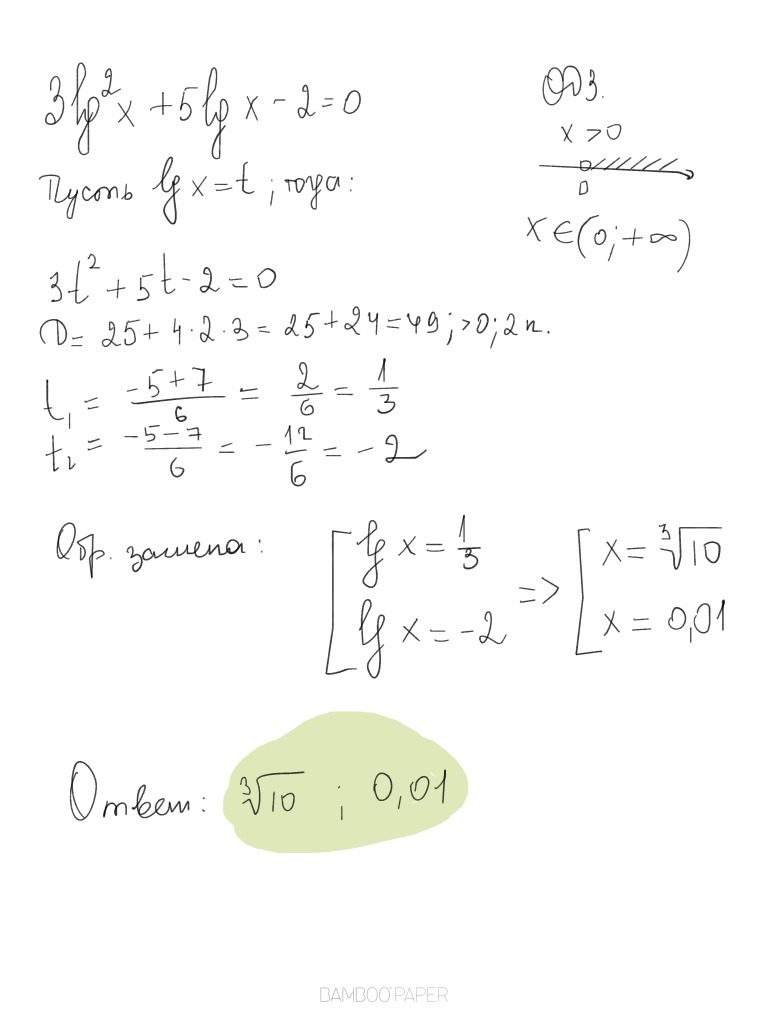 3lg²x + 5lg x - 2 = 0
ОДЗ.
x > 0
0
x ∈ (0; +∞)
Пусть lg x = t ; тогда:
3t² + 5t - 2 = 0
D = 25 + 4·2·3 = 25 + 24 = 49; >0; 2 к.
t₁ = (-5+7)/6 = 2/6 = 1/3
t₂ = (-5-7)/6 = -12/6 = -2
Обр. замена:
[ lg x = 1/3 => [ x = ∛10
lg x = -2 x = 0,01
Ответ: ∛10 ; 0,01
BAMBOO PAPER